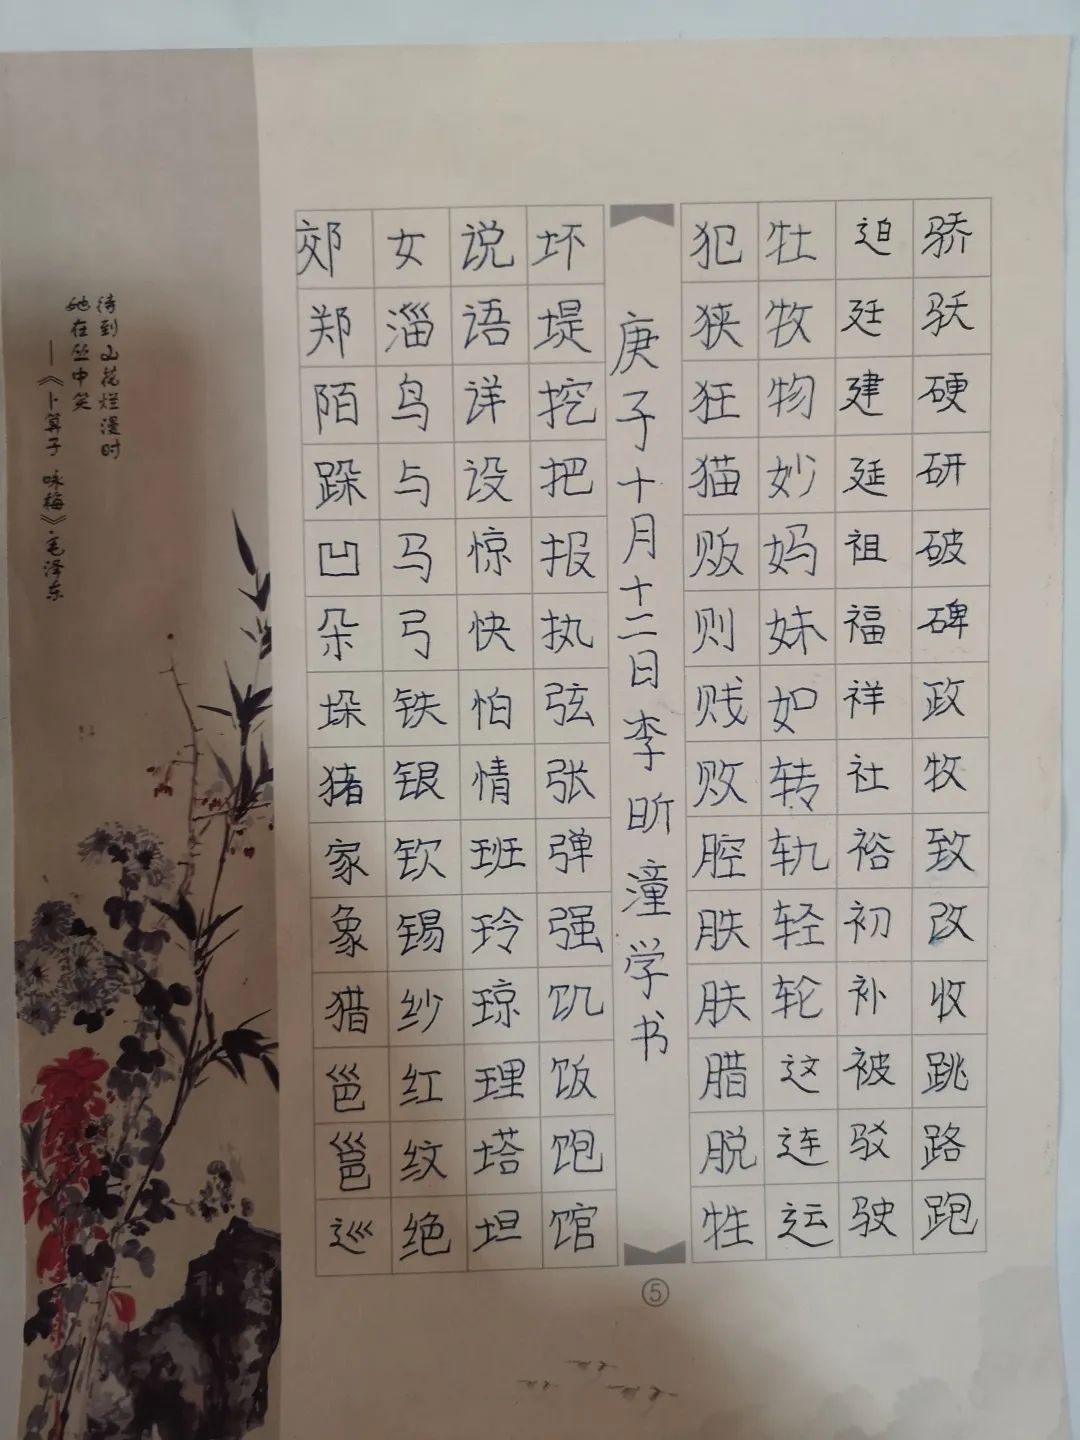 骄硬研破碑政牧致改收跳路跑
迫廷建延祖福祥社裕初补被驳驶
牡牧物妙妈妹如转轨轻轮这连运
犯狭狂猫贩则贱败腔胅肤腊脱牲
庚子十月十二日李昕潼学书
坏堤挖把报执弦张弹强饥饭饱馆
说语详设惊快怕情班玲琼理塔坦
女淄鸟与马弓铁银钦锡纱红纹绝
郊郑陌跺凹朵垛猪家象猎邕邕巡
待到山花烂漫时
她在丛中笑
——《卜算子 咏梅》毛泽东
⑤